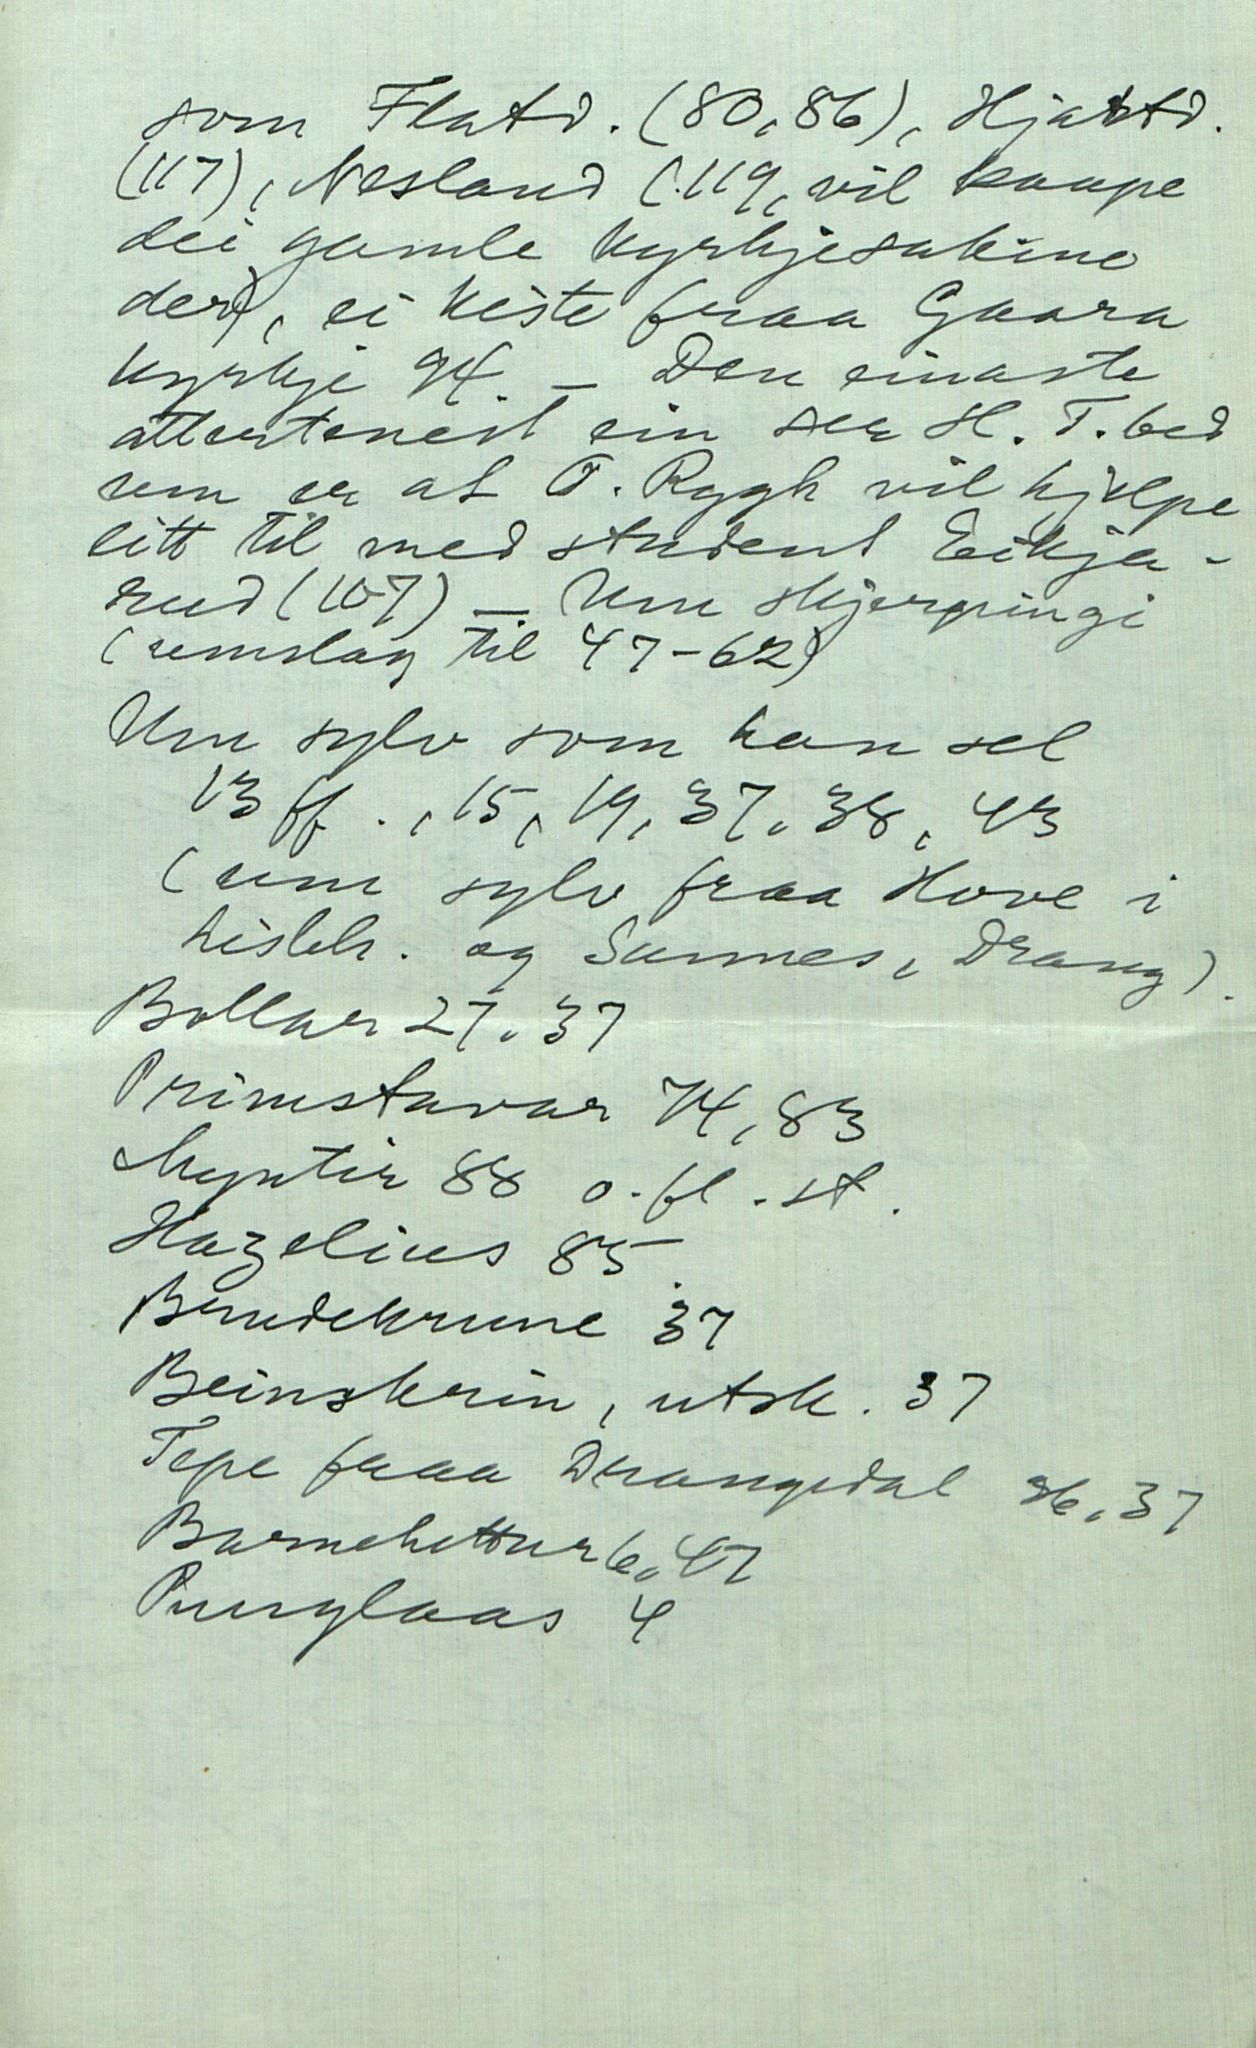 som Flatd. (80, 86), Hjartd.
(117), Nesland (119, vil kaupe
dei gamle kyrkjesakine
der), ei kiste fraa Gaara
kyrkje 94. – Den einaste
attertenest ein ser H. T. bed
um er at O. Rygh vil hjelpe
litt til med student Eikja-
rud (107) – Um skjerpingi
(umslag til 47-62)
Um sylv som han sel
13 ff., 15, 19, 37, 38, 43
(um sylv fraa Hove i
Lisleh. og Sannes, Drang).
Bollar 27, 37
Primstavar 74, 83
Myntir 88 o. fl. st.
Hazelius 85.
Brudekrune 37
Beinskrin, utsk. 37
Tepe fraa Drangedal 36, 37
Barnehettur 6, 47
Punglaas 4